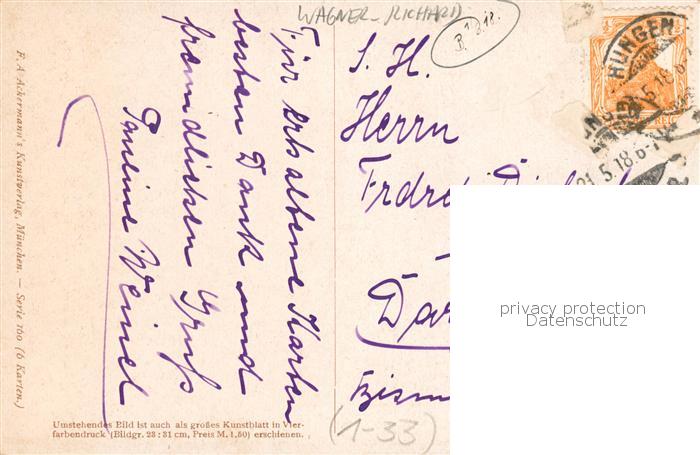 WAGNER-RICHARD
B. 1.8.18.
Für erhaltene Karten
besten Dank und
freundlichen Gruß
Weinel
S. H.
Herrn
Dar
Bism
HUNGEN
21.5.18.6-7
F. A. Ackermann's Kunstverlag, München. — Serie 160 (6 Karten.)
Umstehendes Bild ist auch als großes Kunstblatt in Vier-
farbendruck (Bildgr. 23:31 cm, Preis M. 1,50) erschienen.
(1-33)
privacy protection
Datenschutz